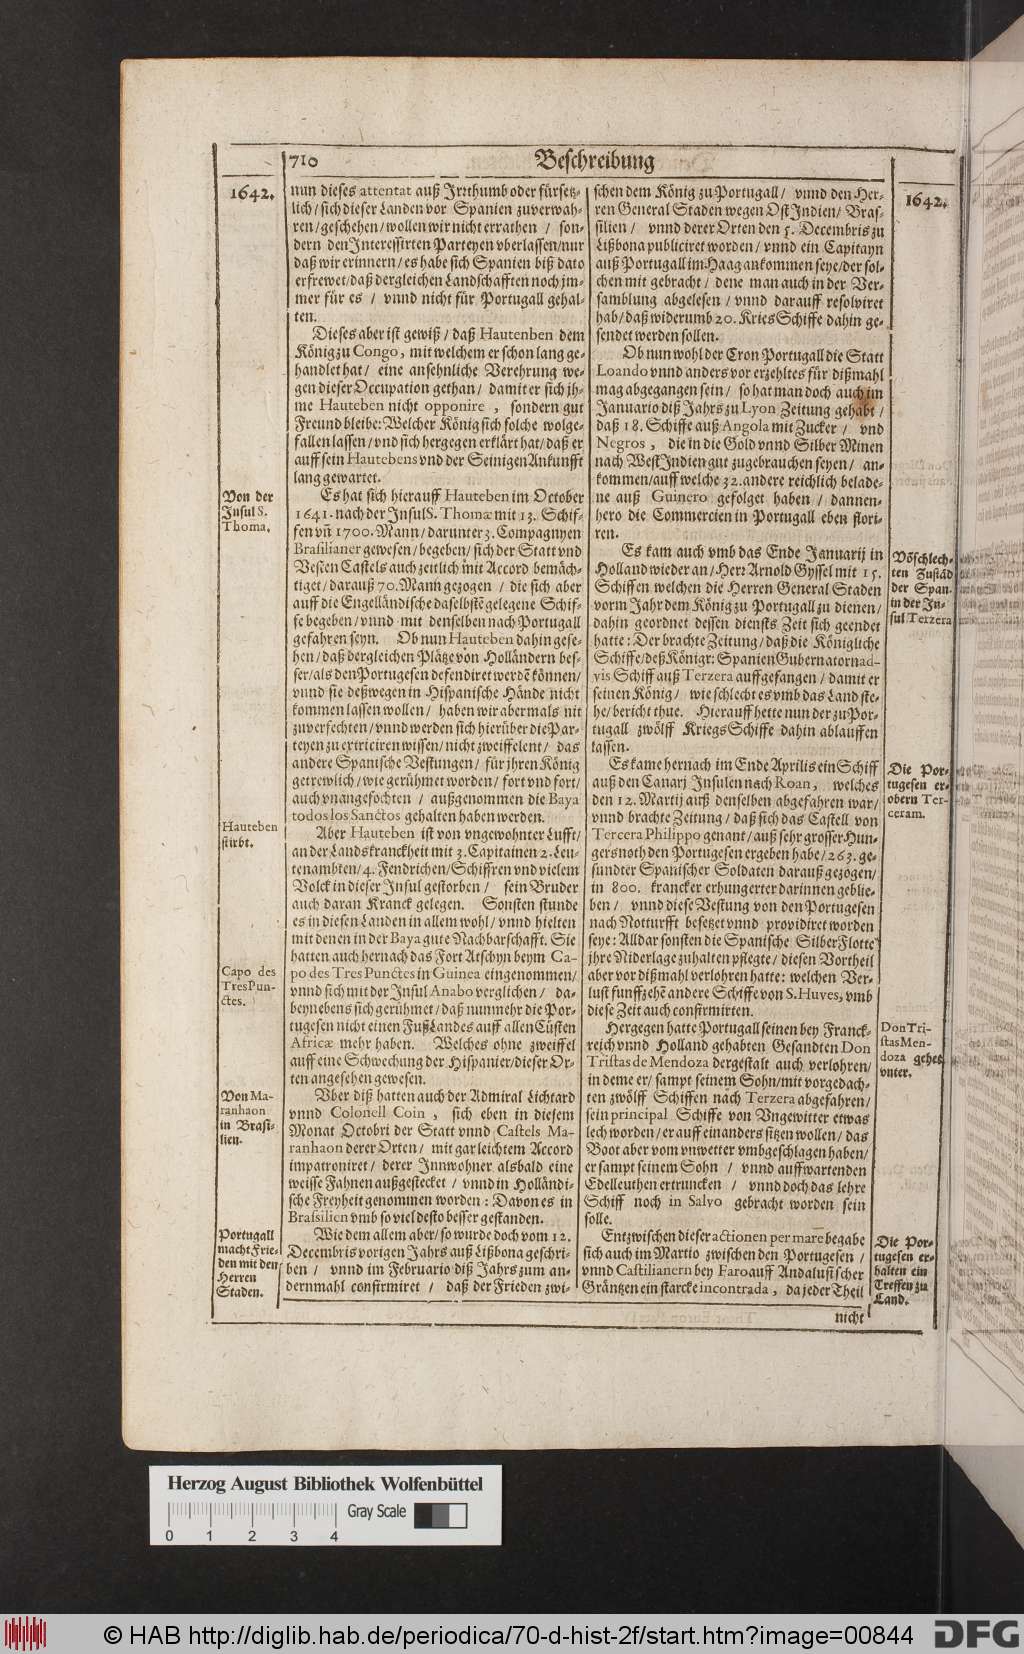 710
Beschreibung
1642.
nun dieses attentat auß Irrthumb oder fürsetz-
lich/ sich dieser Landen vor Spanien zuverwah-
ren/ geschehen/ wollen wir nicht errathen / son-
dern den Interessirten Parteyen vberlassen/ nur
daß wir erinnern/ es habe sich Spanien biß dato
erfrewet/ daß dergleichen Landschafften noch jm-
mer für es / vnnd nicht für Portugall gehal-
ten.
Dieses aber ist gewiß/ daß Hautenben dem
König zu Congo, mit welchem er schon lang ge-
handlet hat/ eine ansehnliche Verehrung we-
gen dieser Occupation gethan/ damit er sich jh-
me Hauteben nicht opponire , sondern gut
Freund bleibe: Welcher König sich solche wolge-
fallen lassen/ vnd sich hergegen erklärt hat/ daß er
auff sein Hautebens vnd der Seinigen Ankunfft
lang gewartet.
Von der
Insul S.
Thoma.
Es hat sich hierauff Hauteben im October
1641. nach der Insul S. Thomæ mit 13. Schif-
fen vñ 1700. Mann/ darunter 3. Compagnyen
Brasilianer gewesen/ begeben/ sich der Statt vnd
Vesten Castels auch zeitlich mit Accord bemäch-
tiget/ darauß 70. Mann gezogen / die sich aber
auff die Engelländische daselbstē gelegene Schif-
fe begeben/ vnnd mit denselben nach Portugall
gefahren seyn. Ob nun Hauteben dahin gese-
hen/ daß dergleichen Plätze von Holländern bes-
ser/ als den Portugesen defendiret werdē können/
vnnd sie deßwegen in Hispanische Hände nicht
kommen lassen wollen/ haben wir abermals nit
zuverfechten/ vnnd werden sich hierüber die Par-
teyen zu extriciren wissen/ nicht zweiffelent/ das
andere Spanische Vestungen/ für jhren König
getrewlich/ wie gerühmet worden/ fort vnd fort/
auch vnangefochten / außgenommen die Baya
todos los Sanctos gehalten haben werden.
Hauteben
stirbt.
Aber Hauteben ist von vngewohnter Lufft/
an der Landskranckheit mit 3. Capitainen 2. Leu-
tenambten/ 4. Fendrichen/ Schiffren vnd vielem
Volck in dieser Insul gestorben/ sein Bruder
auch daran Kranck gelegen. Sonsten stunde
es in diesen Landen in allem wohl/ vnnd hielten
mit denen in der Baya gute Nachbarschafft. Sie
hatten auch hernach das Fort Atschyn beym Ca-
po des Tres Punctes in Guinea eingenommen/
vnnd sich mit der Insul Anabo verglichen/ da-
beynebens sich gerühmet/ daß nunmehr die Por-
tugesen nicht einen Fuß Landes auff allen Cüsten
Africæ mehr haben. Welches ohne zweiffel
auff eine Schwechung der Hispanier/ dieser Or-
ten angesehen gewesen.
Capo des
Tres Pun-
ctes.
Von Ma-
ranhaon
in Brasi-
lien.
Vber diß hatten auch der Admiral Lichtard
vnnd Colonell Coin , sich eben in diesem
Monat Octobri der Statt vnnd Castels Ma-
ranhaon derer Orten/ mit gar leichtem Accord
impatroniret/ derer Innwohner alsbald eine
weisse Fahnen außgestecket/ vnnd in Holländi-
sche Freyheit genommen worden: Davon es in
Brassilien vmb so viel desto besser gestanden.
Portugall
macht Frie-
den mit den
Herren
Staden.
Wie dem allem aber/ so wurde doch vom 12.
Decembris vorigen Jahrs auß Lißbona geschri-
ben/ vnnd im Februario diß Jahrs zum an-
dernmahl confirmiret / daß der Frieden zwi-
schen dem König zu Portugall/ vnnd den Her-
ren General Staden wegen Ost Indien/ Bras-
silien/ vnnd derer Orten den 5. Decembris zu
Lißbona publiciret worden/ vnnd ein Capitayn
auß Portugall im Haag ankommen seye/ der sol-
chen mit gebracht/ dene man auch in der Ver-
samblung abgelesen/ vnnd darauff resolviret
hab/ daß widerumb 20. Kries Schiffe dahin ge-
sendet werden sollen.
1642.
Ob nun wohl der Cron Portugall die Statt
Loando vnnd anders vor erzehltes für dißmahl
mag abgegangen sein/ so hat man doch auch im
Januario diß Jahrs zu Lyon Zeitung gehabt/
daß 18. Schiffe auß Angola mit Zucker/ vnd
Negros , die in die Gold vnnd Silber Minen
nach West Indien gut zugebrauchen seyen/ an-
kommen/ auff welche 32. andere reichlich belade-
ne auß Guinero gefolget haben/ dannen-
hero die Commercien in Portugall eben flori-
ren.
Es kam auch vmb das Ende Januarij in
Holland wieder an/ Herr Arnold Gyssel mit 15.
Schiffen welchen die Herren General Staden
vorm Jahr dem König zu Portugall zu dienen/
dahin geordnet dessen diensts Zeit sich geendet
hatte: Der brachte Zeitung/ daß die Königliche
Schiffe/ deß Königr: Spanien Gubernatorn ad-
vis Schiff auß Terzera auffgefangen/ damit er
seinen König/ wie schlecht es vmb das Land ste-
he/ bericht thue. Hierauff hette nun der zu Por-
tugall zwölff Kriegs Schiffe dahin ablauffen
lassen.
Vöschlech-
ten Zustād
der Span.
in der In-
sul Terzera
Die Por-
tugesen er-
obern Ter-
ceram.
Es kame hernach im Ende Aprilis ein Schiff
auß den Canarj Insulen nach Roan, welches
den 12. Martij auß denselben abgefahren war/
vnnd brachte Zeitung/ daß sich das Castell von
Tercera Philippo genant/ auß sehr grosser Hun-
gersnoth den Portugesen ergeben habe/ 263. ge-
sundter Spanischer Soldaten darauß gezogen/
in 800. krancker erhungerter darinnen geblie-
ben/ vnnd diese Vestung von den Portugesen
nach Notturfft besetzet vnnd providiret worden
seye: Alldar sonsten die Spanische Silber Flotte
jhre Niderlage zuhalten pflegte/ diesen Vortheil
aber vor dißmahl verlohren hatte: welchen Ver-
lust funffzehē andere Schiffe von S. Huves, vmb
diese Zeit auch confirmirten.
Don Tri-
stas Men-
doza gehet
vnter.
Hergegen hatte Portugall seinen bey Franck-
reich vnnd Holland gehabten Gesandten Don
Tristas de Mendoza dergestalt auch verlohren/
in deme er/ sampt seinem Sohn/ mit vorgedach-
ten zwölff Schiffen nach Terzera abgefahren/
sein principal Schiffe von Vngewitter etwas
lech worden/ er auff ein anders sitzen wollen/ das
Boot aber vom vnwetter vmbgeschlagen haben/
er sampt seinem Sohn / vnnd auffwartenden
Edelleuthen ertruncken/ vnnd doch das lehre
Schiff noch in Salvo gebracht worden sein
solle.
Die Por-
tugesen er-
halten ein
Treffen zu
Land.
Entzwischen dieser actionen per mare begabe
sich auch im Martio zwischen den Portugesen/
vnnd Castilianern bey Faro auff Andalusischer
Gräntzen ein starcke incontrada, da jeder Theil
nicht
Herzog August Bibliothek Wolfenbüttel
Gray Scale
0 1 2 3 4
© HAB http://diglib.hab.de/periodica/70-d-hist-2f/start.htm?image=00844
DFG